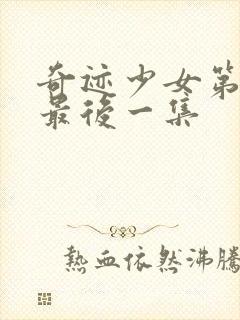 奇迹少女第
最後一集
熱血依然沸騰